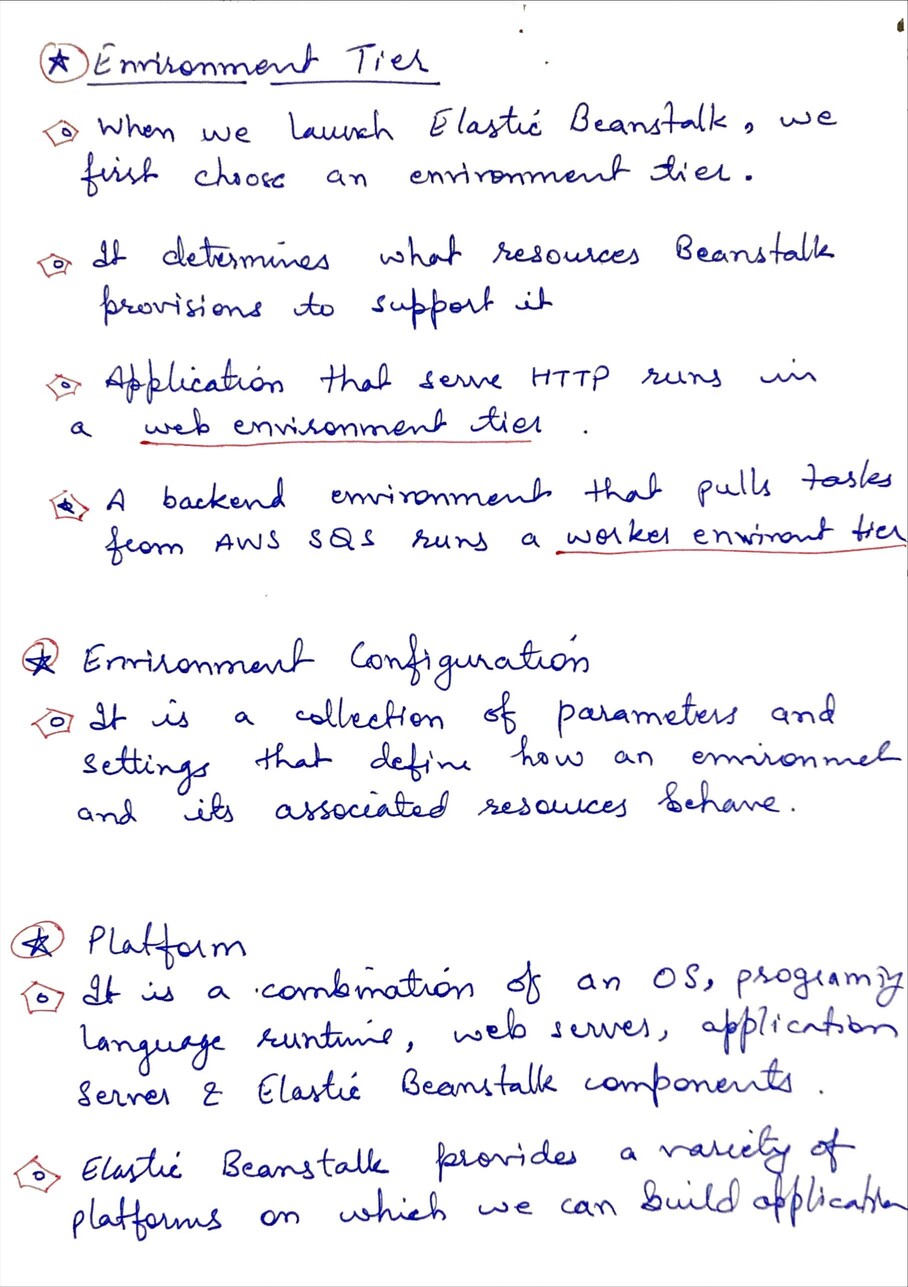 Environment Tier
When we launch Elastic Beanstalk, we
first choose an environment tier.
It determines what resources Beanstalk
provisions to support it
Application that serve HTTP runs in
a web environment tier .
A backend environment that pulls tasks
from AWS SQS runs a worker environt tier
Environment Configuration
It is a collection of parameters and
settings that define how an environmet
and its associated resources behave.
Platform
It is a combination of an OS, programig
language runtime, web server, application
server & Elastic Beanstalk components .
Elastic Beanstalk provides a variety of
platforms on which we can build application